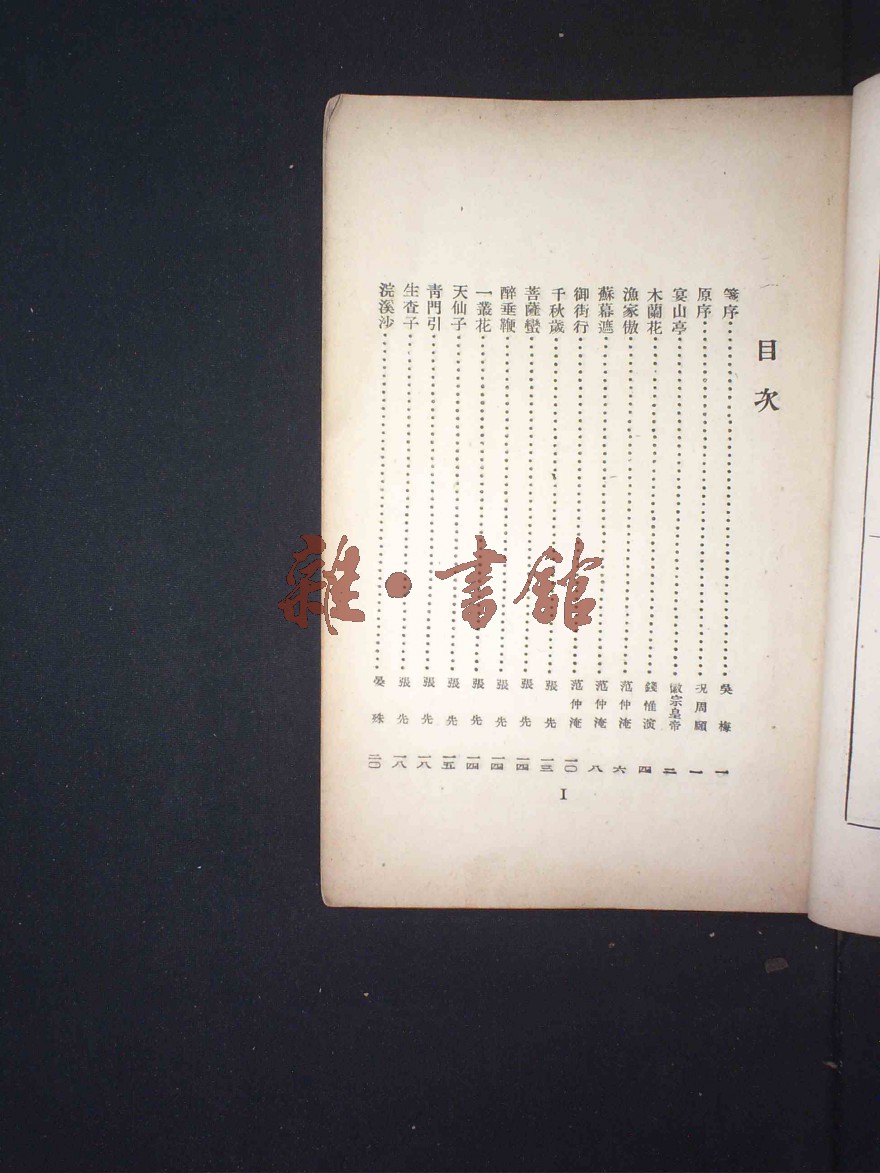 目次
箋序 吳梅 一
原序 況周頤 一
宴山亭 徽宗皇帝 二
木蘭花 錢惟演 四
漁家傲 范仲淹 六
蘇幕遮 范仲淹 八
御街行 范仲淹 一〇
千秋歲 張先 一三
菩薩蠻 張先 一四
醉垂鞭 張先 一四
一叢花 張先 一四
天仙子 張先 一五
青門引 張先 一八
生查子 張先 一八
浣溪沙 晏殊 二〇
I
雜·書館